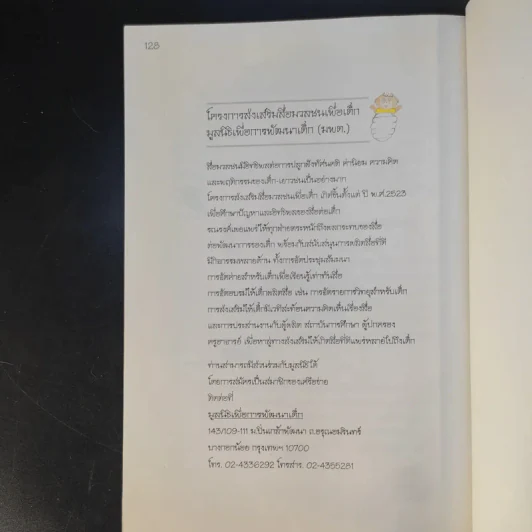 128
โครงการส่งเสริมสื่อมวลชนเพื่อเด็ก
มูลนิธิเพื่อการพัฒนาเด็ก (มพด.)
สื่อมวลชนมีอิทธิพลต่อการปลูกฝังทัศนคติ ค่านิยม ความคิด
และพฤติกรรมของเด็ก-เยาวชนเป็นอย่างมาก
โครงการส่งเสริมสื่อมวลชนเพื่อเด็ก เกิดขึ้นตั้งแต่ ปี พ.ศ.2523
เพื่อศึกษาปัญหาและอิทธิพลของสื่อต่อเด็ก
รณรงค์เผยแพร่ให้ทุกฝ่ายตระหนักถึงผลกระทบของสื่อ
ต่อพัฒนาการของเด็ก พร้อมกับสนับสนุนการผลิตสื่อที่ดี
มีกิจกรรมหลายด้าน ทั้งการจัดประชุมสัมมนา
การจัดค่ายสำหรับเด็กเพื่อเรียนรู้เท่าทันสื่อ
การจัดอบรมให้เด็กผลิตสื่อ เช่น การจัดรายการวิทยุสำหรับเด็ก
การส่งเสริมให้เด็กมีเวทีสะท้อนความคิดเห็นเรื่องสื่อ
และการประสานงานกับผู้ผลิต สถาบันการศึกษา ผู้ปกครอง
ครูอาจารย์ เพื่อหาลู่ทางส่งเสริมให้เกิดสื่อที่ดีแพร่หลายไปถึงเด็ก
ท่านสามารถมีส่วนร่วมกับมูลนิธิได้
โดยการสมัครเป็นสมาชิกของเครือข่าย
ติดต่อที่
มูลนิธิเพื่อการพัฒนาเด็ก
143/109-111 ม.ปิ่นเกล้าพัฒนา ถ.อรุณอมรินทร์
บางกอกน้อย กรุงเทพฯ 10700
โทร. 02-4336292 โทรสาร. 02-4355281